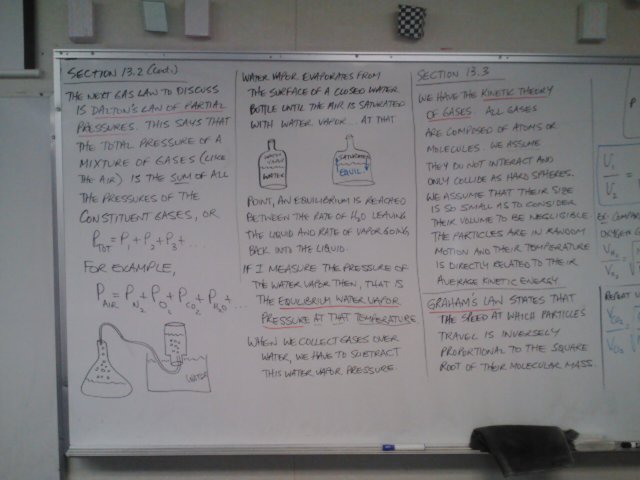 SECTION 13.2 (cont.)
THE NEXT GAS LAW TO DISCUSS
IS DALTON'S LAW OF PARTIAL
PRESSURES. THIS SAYS THAT
THE TOTAL PRESSURE OF A
MIXTURE OF GASES (LIKE
THE AIR) IS THE SUM OF ALL
THE PRESSURES OF THE
CONSTITUENT GASES, OR
P_TOT = P_1 + P_2 + P_3 + ...
FOR EXAMPLE,
P_AIR = P_N2 + P_O2 + P_CO2 + P_H2O + ...
WATER
WATER VAPOR EVAPORATES FROM
THE SURFACE OF A CLOSED WATER
BOTTLE UNTIL THE AIR IS SATURATED
WITH WATER VAPOR... AT THAT
WATER VAPOR
WATER
SATURATED
EQUIL.
POINT, AN EQUILIBRIUM IS REACHED
BETWEEN THE RATE OF H2O LEAVING
THE LIQUID AND RATE OF VAPOR GOING
BACK INTO THE LIQUID.
IF I MEASURE THE PRESSURE OF
THE WATER VAPOR THEN, THAT IS
THE EQUILIBRIUM WATER VAPOR
PRESSURE AT THAT TEMPERATURE.
WHEN WE COLLECT GASES OVER
WATER, WE HAVE TO SUBTRACT
THIS WATER VAPOR PRESSURE
SECTION 13.3
WE HAVE THE KINETIC THEORY
OF GASES. ALL GASES
ARE COMPOSED OF ATOMS OR
MOLECULES. WE ASSUME
THEY DO NOT INTERACT AND
ONLY COLLIDE AS HARD SPHERES.
WE ASSUME THAT THEIR SIZE
IS SO SMALL AS TO CONSIDER
THEIR VOLUME TO BE NEGLIGIBLE.
THE PARTICLES ARE IN RANDOM
MOTION AND THEIR TEMPERATURE
IS DIRECTLY RELATED TO THEIR
AVERAGE KINETIC ENERGY
GRAHAM'S LAW STATES THAT
THE SPEED AT WHICH PARTICLES
TRAVEL IS INVERSELY
PROPORTIONAL TO THE SQUARE
ROOT OF THEIR MOLECULAR MASS.
P
V_1/V_2 =